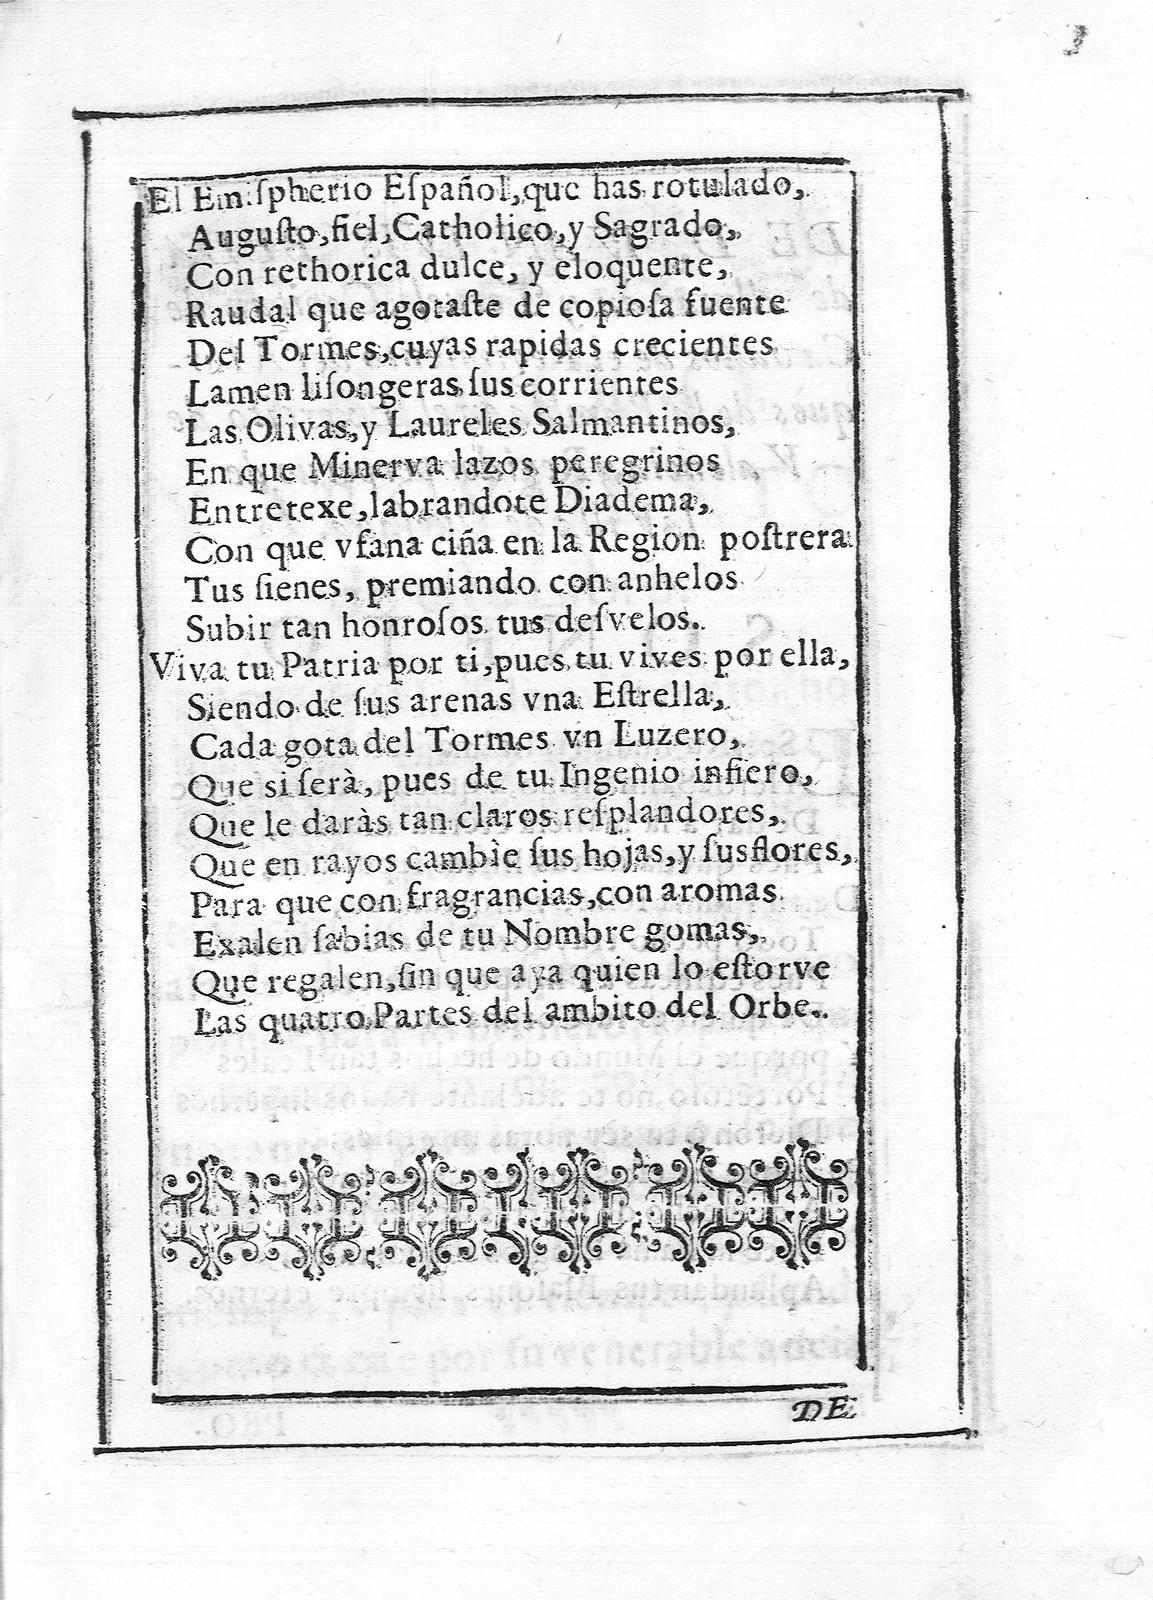 3
El Emiſpherio Eſpañol, que has rotulado,
Auguſto, fiel, Catholico, y Sagrado,
Con rethorica dulce, y eloquente,
Raudal que agotaſte de copioſa fuente
Del Tormes, cuyas rapidas crecientes
Lamen liſongeras ſus corrientes
Las Olivas, y Laureles Salmantinos,
En que Minerva lazos peregrinos
Entretexe, labrandote Diadema,
Con que vfana ciña en la Region poſtrera
Tus ſienes, premiando con anhelos
Subir tan honroſos tus deſvelos.
Viva tu Patria por ti, pues tu vives por ella,
Siendo de ſus arenas vna Eſtrella,
Cada gota del Tormes vn Luzero,
Que si ſerà, pues de tu Ingenio infiero,
Que le daràs tan claros reſplandores,
Que en rayos cambie ſus hojas, y ſus flores,
Para que con fragrancias, con aromas
Exalen ſabias de tu Nombre gomas,
Que regalen, ſin que aya quien lo eſtorve
Las quatro Partes del ambito del Orbe.
DE